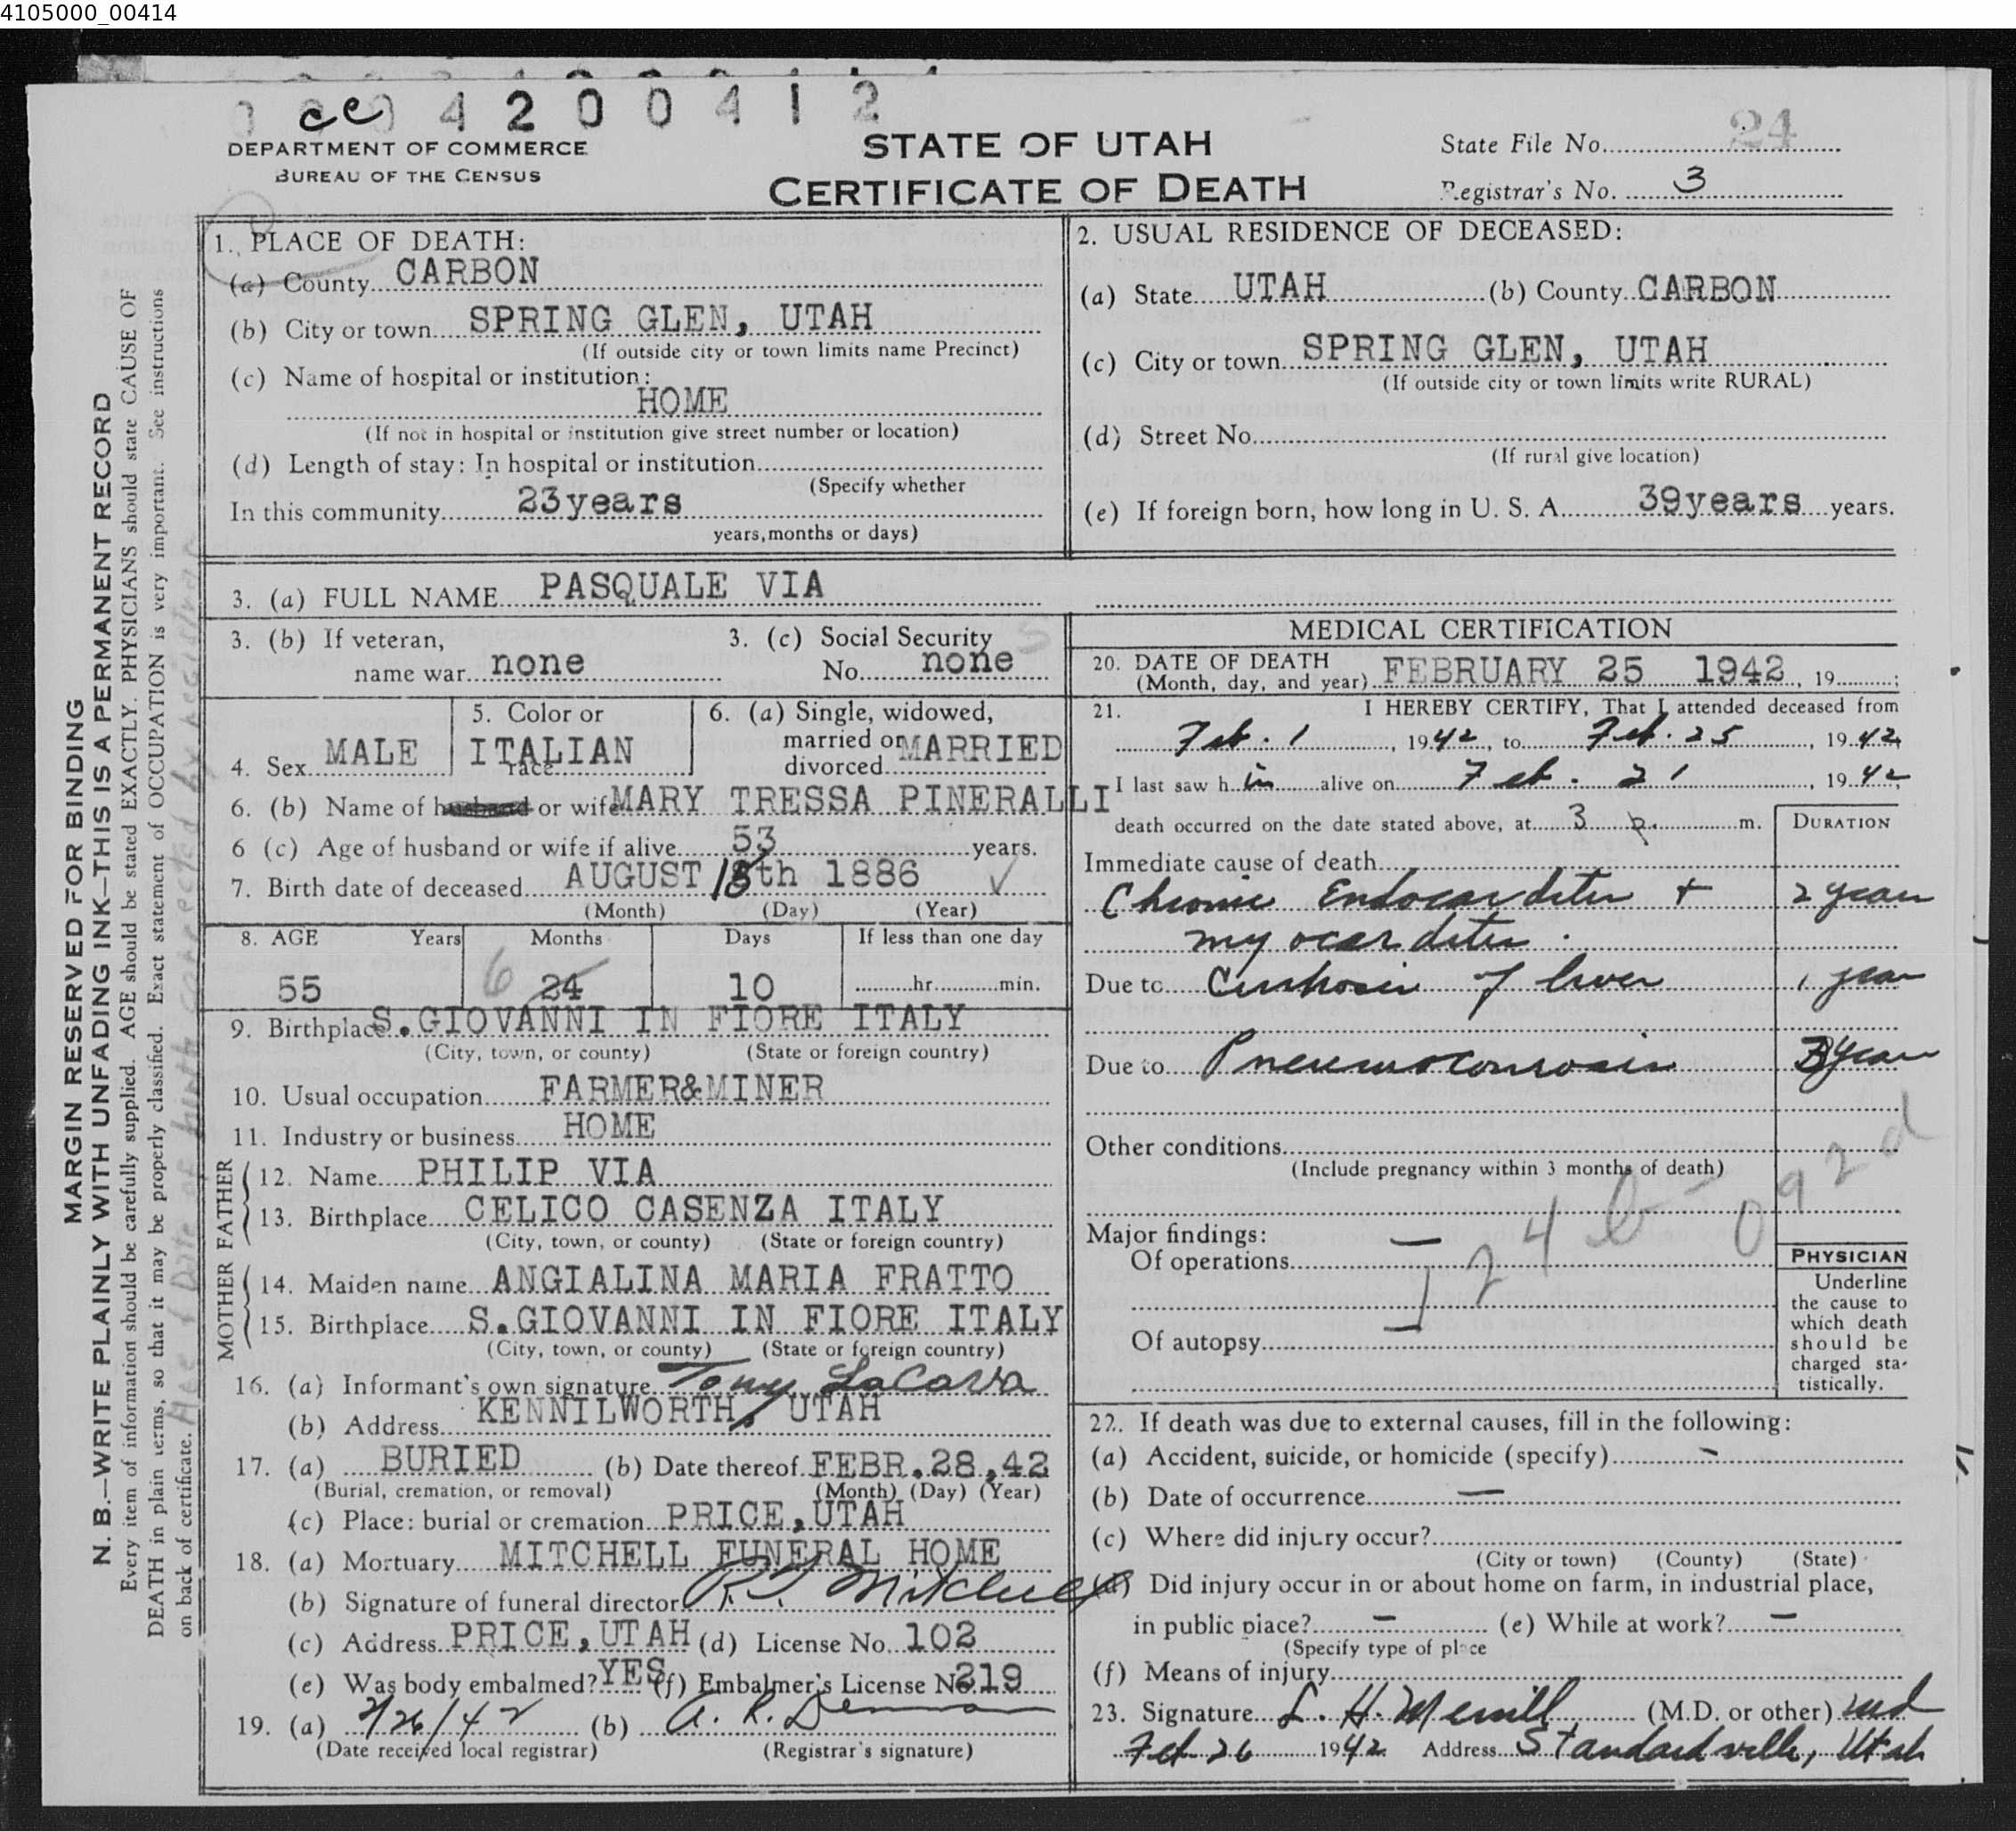 4105000_00414
ce 4 2 0 0 4 1 2
DEPARTMENT OF COMMERCE
BUREAU OF THE CENSUS
STATE OF UTAH
CERTIFICATE OF DEATH
State File No. 24
Registrar's No. 3
MARGIN RESERVED FOR BINDING
N. B.—WRITE PLAINLY WITH UNFADING INK—THIS IS A PERMANENT RECORD
Every item of information should be carefully supplied. AGE should be stated EXACTLY. PHYSICIANS should state CAUSE OF
DEATH in plain terms, so that it may be properly classified. Exact statement of OCCUPATION is very important. See instructions
on back of certificate.
Age & Date of birth corrected by registrar
1. PLACE OF DEATH:
(a) County CARBON
(b) City or town SPRING GLEN, UTAH
(If outside city or town limits name Precinct)
(c) Name of hospital or institution:
HOME
(If not in hospital or institution give street number or location)
(d) Length of stay: In hospital or institution
(Specify whether
In this community 23years
years, months or days)
2. USUAL RESIDENCE OF DECEASED:
(a) State UTAH (b) County CARBON
(c) City or town SPRING GLEN, UTAH
(If outside city or town limits write RURAL)
(d) Street No.
(If rural give location)
(e) If foreign born, how long in U. S. A. 39years years.
3. (a) FULL NAME PASQUALE VIA
3. (b) If veteran,
name war none
3. (c) Social Security
No. none
4. Sex MALE
5. Color or
race ITALIAN
6. (a) Single, widowed,
married or MARRIED
divorced
6. (b) Name of husband or wife MARY TRESSA PINERALLI
6 (c) Age of husband or wife if alive 53 years.
7. Birth date of deceased AUGUST 15th 1886 ✓
(Month) (Day) (Year)
8. AGE Years Months Days If less than one day
55 6 24 10 hr. min.
9. Birthplace S.GIOVANNI IN FIORE ITALY
(City, town, or county) (State or foreign country)
10. Usual occupation FARMER&MINER
11. Industry or business HOME
FATHER
12. Name PHILIP VIA
13. Birthplace CELICO CASENZA ITALY
(City, town, or county) (State or foreign country)
MOTHER
14. Maiden name ANGIALINA MARIA FRATTO
15. Birthplace S.GIOVANNI IN FIORE ITALY
(City, town, or county) (State or foreign country)
16. (a) Informant's own signature Tony LaCava
(b) Address KENNILWORTH, UTAH
17. (a) BURIED (b) Date thereof FEBR.28,42
(Burial, cremation, or removal) (Month) (Day) (Year)
(c) Place: burial or cremation PRICE,UTAH
18. (a) Mortuary MITCHELL FUNERAL HOME
(b) Signature of funeral director Mitchell
(c) Address PRICE,UTAH (d) License No. 102
(e) Was body embalmed? YES (f) Embalmer's License No 219
19. (a) 2/26/42 (b) A. R. Denman
(Date received local registrar) (Registrar's signature)
MEDICAL CERTIFICATION
20. DATE OF DEATH
(Month, day, and year) FEBRUARY 25 1942, 19 ;
21. I HEREBY CERTIFY, That I attended deceased from
Feb. 1, 1942, to Feb. 25, 1942
I last saw h im alive on Feb. 21, 1942,
death occurred on the date stated above, at 3 p. m.
DURATION
Immediate cause of death
Chronic Endocarditis + 2 years
myocarditis.
Due to Cirrhosis of liver 1 year
Due to Pneumoconiosis 3 years
Other conditions
(Include pregnancy within 3 months of death)
124 b - 092d
Major findings:
Of operations
Of autopsy
PHYSICIAN
Underline
the cause to
which death
should be
charged sta-
tistically.
22. If death was due to external causes, fill in the following:
(a) Accident, suicide, or homicide (specify) -
(b) Date of occurrence —
(c) Where did injury occur?
(City or town) (County) (State)
(d) Did injury occur in or about home on farm, in industrial place,
in public place? - (e) While at work? -
(Specify type of place
(f) Means of injury
23. Signature L. H. Merrill (M.D. or other) md
Feb 26 1942 Address Standardville, Utah